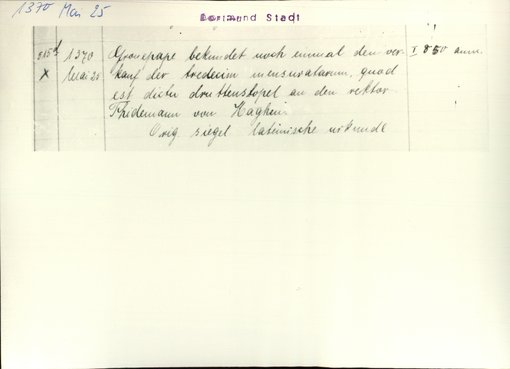 1370 Mai 25
Dortmund Stadt
515d 1370 Gronepape bekundet noch einmal den ver- I 850 anm.
x Mai 25 kauf der tredecim mensuratarum, quod
est dictu druttenstopel an den rektor
Thidemann von Haghen.
Orig siegel lateinische urkunde